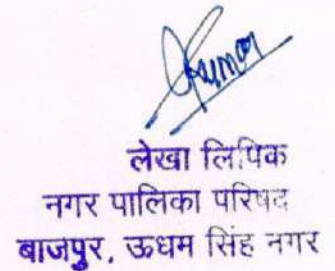 Kumar
लेखा लिपिक
नगर पालिका परिषद
बाजपुर, ऊधम सिंह नगर